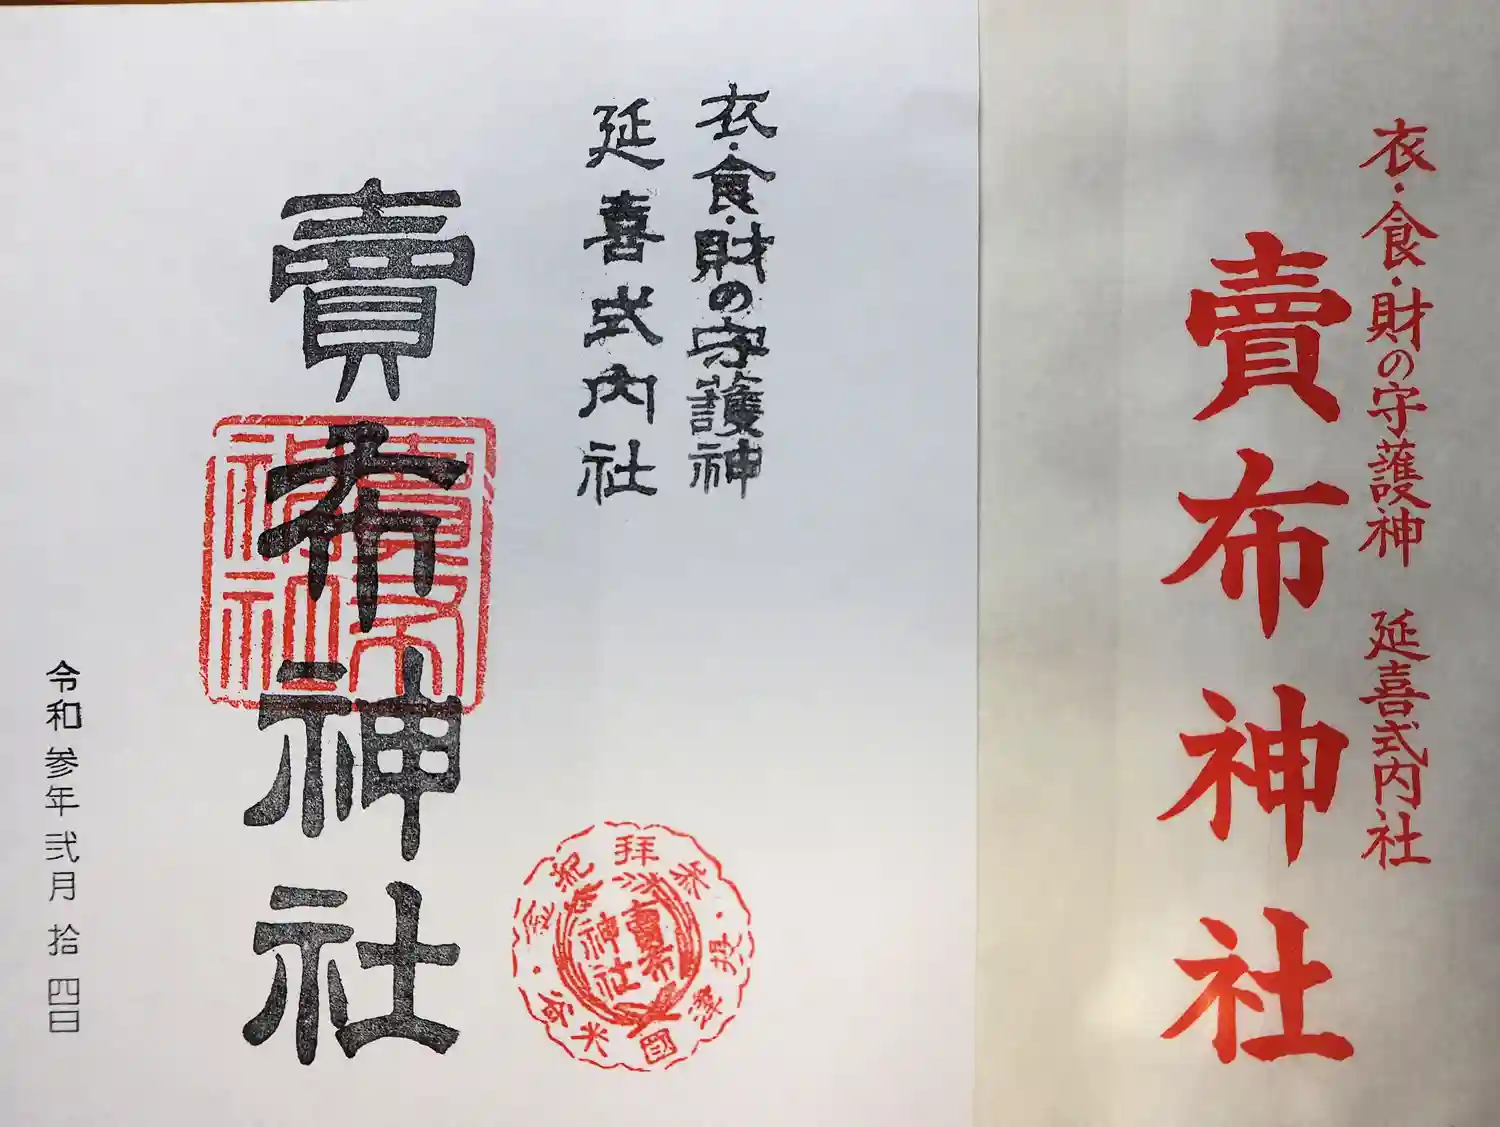 衣・食・財の守護神　延喜式内社
賣布神社
衣・食・財の守護神
延喜式内社
賣布神社
賣布神社
令和参年弐月拾四日
参拝紀念
摂津國米谷
賣布神社